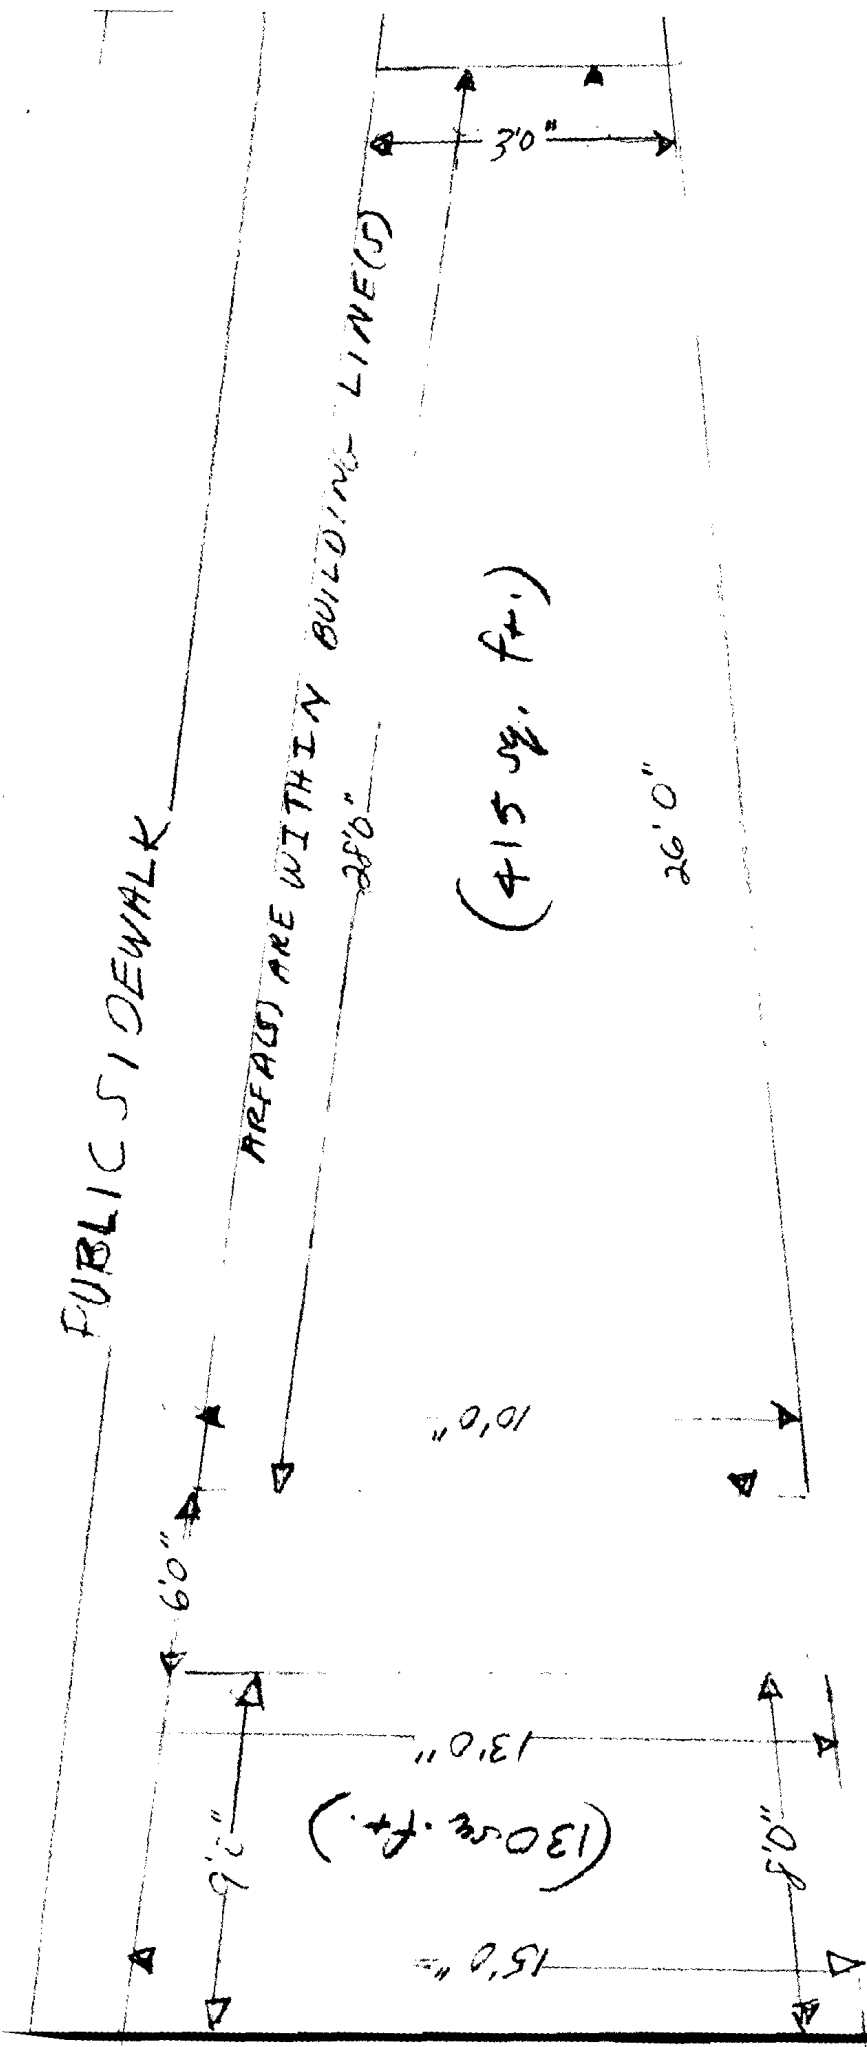 PUBLIC SIDEWALK
AREA(S) ARE WITHIN BUILDING LINE(S)
3'0"
28'0"
(415 sq. ft.)
26'0"
10'0"
6'0"
13'0"
(130 sq. ft.)
8'0"
15'0"